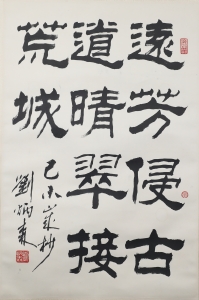 遠芳侵古
道晴翠接
荒城
己未歲抄
劉炳森